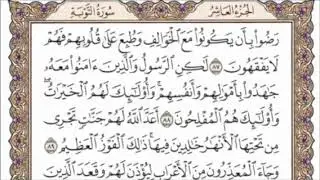 الجزء العاشر سورة التوبة
رضوا بأن يكونوا مع الخوالف وطبع على قلوبهم فهم
لا يفقهون ٨٧ لكن الرسول والذين ءامنوا معه
جهدوا بأمولهم وأنفسهم وأولئك لهم الخيرت
وأولئك هم المفلحون ٨٨ أعد الله لهم جنت تجري
من تحتها الأنهر خلدين فيها ذلك الفوز العظيم ٨٩
وجاء المعذرون من الأعراب ليؤذن لهم وقعد الذين